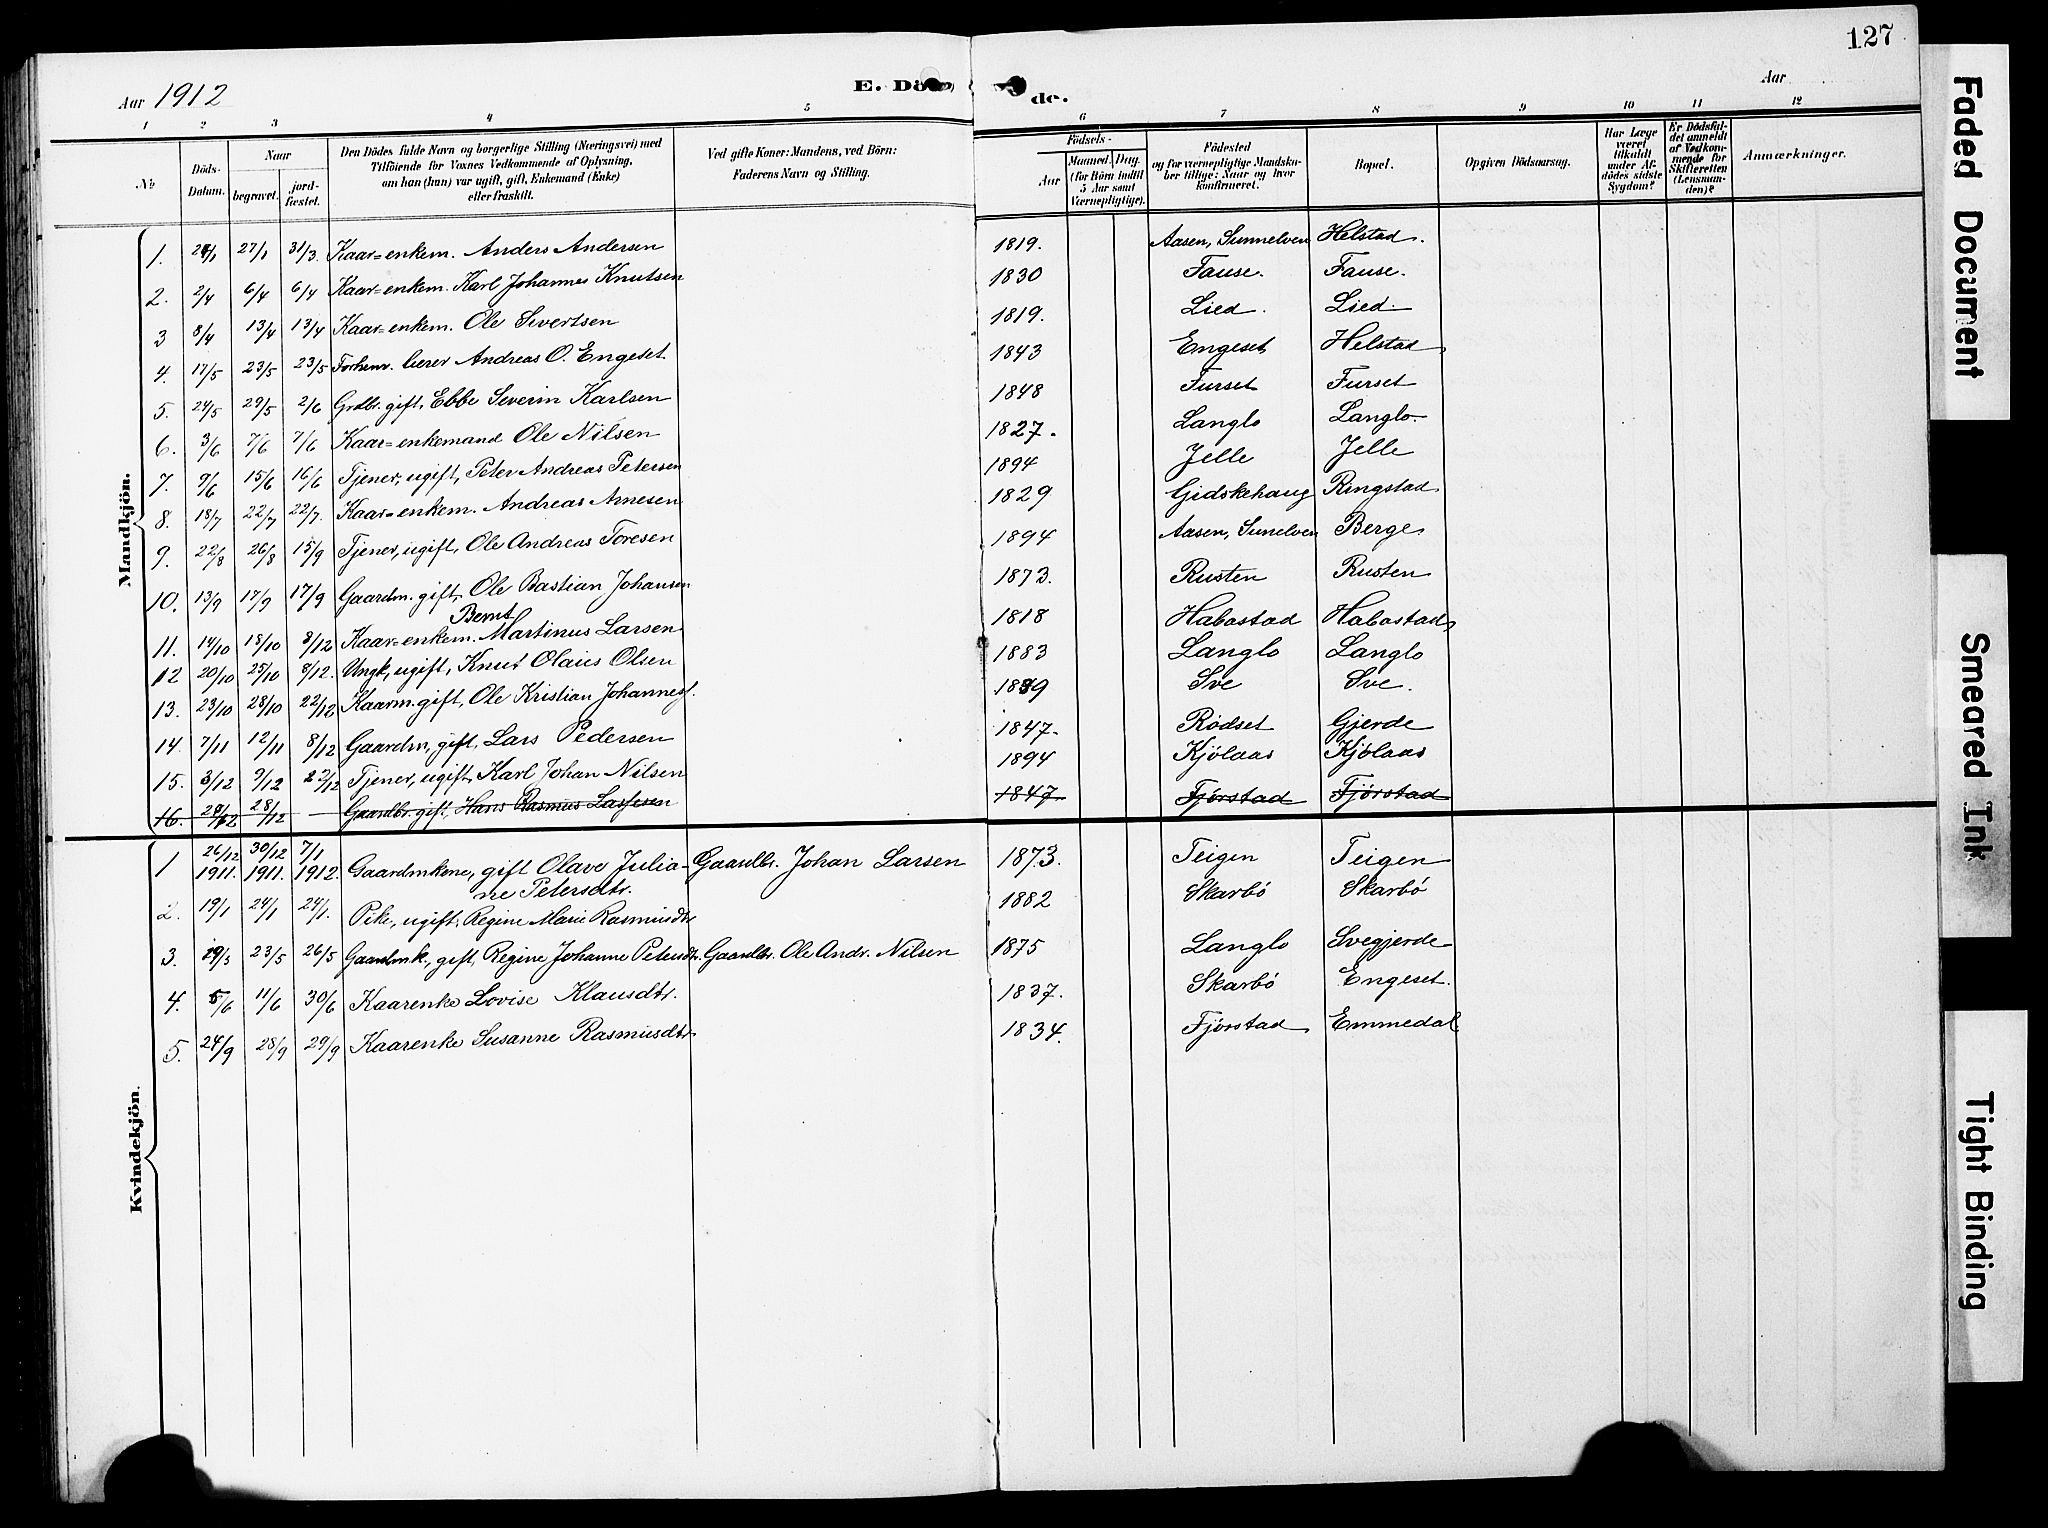 127
Aar 1912
E. Dö de.
Aar
1 2 3 4 5 6 7 8 9 10 11 12
№
Döds-Datum.
Naar
begravet.
jord-fæstet.
Den Dödes fulde Navn og borgerlige Stilling (Næringsvei) med
Tilföiende for Voxnes Vedkommende af Oplysning,
om han (hun) var ugift, gift, Enkemand (Enke)
eller fraskilt.
Ved gifte Koner: Mandens, ved Börn:
Faderens Navn og Stilling.
Födsels-
Aar
Maaned. Dag.
(for Börn indtil
5 Aar samt
Værnepligtige).
Födested
og for værnepligtige Mandska-
ber tillige: Naar og hvor
konfirmeret.
Bopæl.
Opgiven Dödsaarsag.
Har Læge
været
tilkaldt
under Af-
dödes sidste
Sygdom?
Er Dödsfal-
det anmeldt
af Vedkom-
mende for
Skifteretten
(Lensman-
den)?
Anmærkninger.
Mandkjön.
1. 24/1 27/1 31/3 Kaar=enkem. Anders Andersen 1819. Aasen, Sunnelven Helstad.
2. 2/4 6/4 6/4 Kaar=enkem. Karl Johannes Knutsen 1830 Fause. Fause.
3 8/4 13/4 13/4 Kaar=enkem. Ole Sivertsen 1819. Lied. Lied.
4. 17/5 23/5 23/5 Forhenv. lærer Andreas O. Engeset 1843 Engeset Helstad
5. 24/5 29/5 2/6 Grdbr. gift, Ebbe Severin Karlsen 1848 Furset Furset
6. 3/6 7/6 7/6 Kaar=enkemand Ole Nilsen 1827. Langlo Langlo
7. 9/6 15/6 16/6 Tjener, ugift, Peter Andreas Petersen 1894 Jelle Jelle
8. 18/7 22/7 22/7. Kaar=enkem. Andreas Arnesen 1829 Gidskehaug Ringstad
9. 22/8 26/8 15/9 Tjener, ugift, Ole Andreas Toresen 1894 Aasen, Sunelven Berge
10. 13/9 17/9 17/9 Gaardm. gift, Ole Bastian Johansen 1873. Rusten Rusten
Bernt
11. 14/10 18/10 8/12 Kaar=enkem. Martinus Larsen 1818 Habostad Habostad
12 20/10 25/10 8/12. Ungk, ugift, Knut Olaus Olsen 1883 Langlo Langlo
13. 23/10 28/10 22/12 Kaarm. gift, Ole Kristian Johannesf. 1839 Sve Sve.
14. 7/11 12/11 8/12 Gaardm, gift, Lars Pedersen 1847. Rødset Gjerde
15. 3/12 9/12 22/12 Tjener, ugift, Karl Johan Nilsen 1894 Kjölaas Kjölaas
16. 28/12 28/12 — Gaardbr. gift, Hans Rasmus Lassesen 1847. Fjørstad Fjørstad
Kvindekjön.
1 26/12 1911. 30/12 1911. 7/1 1912. Gaardmkone, gift Olave Julia- Gaardbr. Johan Larsen 1873. Teigen Teigen
ne Petersdtr.
2. 19/1 24/1 24/1. Pike, ugift, Regine Marie Rasmusdtr 1882 Skarbö Skarbö
3. 19/5 23/5 26/5 Gaardmk., gift, Regine Johanne Petersdtr. Gaardbr. Ole Andr. Nilsen 1875 Langlo Svegjerde
4. 5/6 11/6 30/6 Kaarenke Lovise Klausdtr. 1837. Skarbö Engeset.
5. 24/9 28/9 29/9 Kaarenke Susanne Rasmusdtr 1834. Fjørstad Emmedal
Faded Document
Smeared Ink
Tight Binding